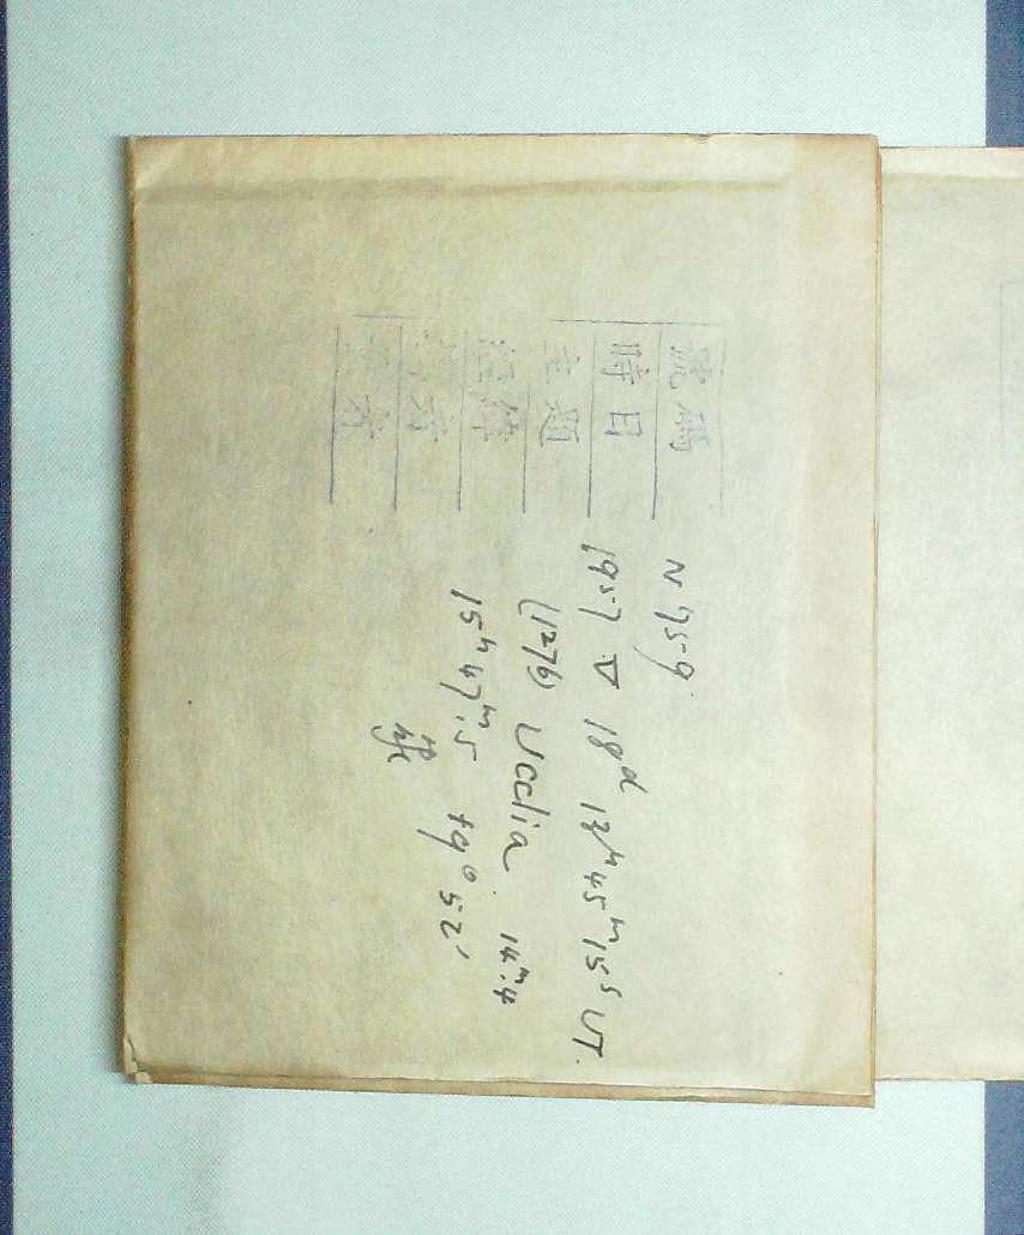 號碼 N
時日 1957 V 18ᵈ 13ʰ45ᵐ15ˢ UT.
主題 (1276) Ucclia 14ᵐ.4
經緯 15ʰ47ᵐ.5 +9°52′
張